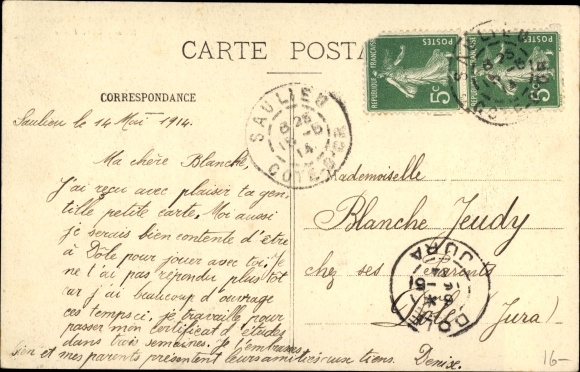 CARTE POSTA
CORRESPONDANCE
POSTES
REPUBLIQUE FRANÇAISE
5c
POSTES
REPUBLIQUE FRANÇAISE
5c
SAULIEU
COTE-D'OR
Saulieu le 14 Mai 1914.
Ma chère Blanche,
J'ai reçu avec plaisir ta gen
tille petite carte. Moi aussi
je serais bien contente d'être
à Dôle pour jouer avec toi. Je
ne t'ai pas répondu plus tôt
car j'ai beaucoup d'ouvrage
ces temps ci, je travaille pour
passer mon certificat d'études
dans trois semaines. Je t'embrasse
bien et mes parents présentent leurs amitiés aux tiens. Denise.
Mademoiselle
Blanche Jeudy
chez ses parents
(Jura)
JURA
16-